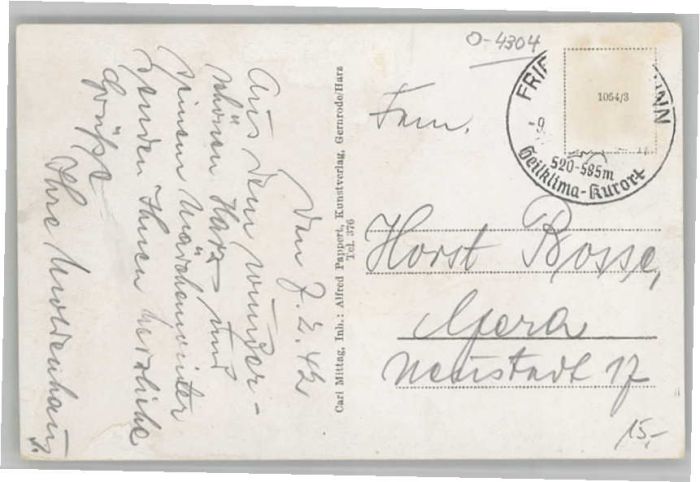 O-4304
FRIE
NN
1054/3
-9.
520-585m
Heilklima-Kurort
den 7.2.42
Aus dem wunder-
schönen Harz und
seinem Märchenwinter
senden Ihnen herzliche
Grüße
Ihre
Carl Mittag, Inh.: Alfred Pappert, Kunstverlag, Gernrode/Harz
Tel. 376
Fam.
Horst Bosse,
Gera
Neustadt 17
15,-